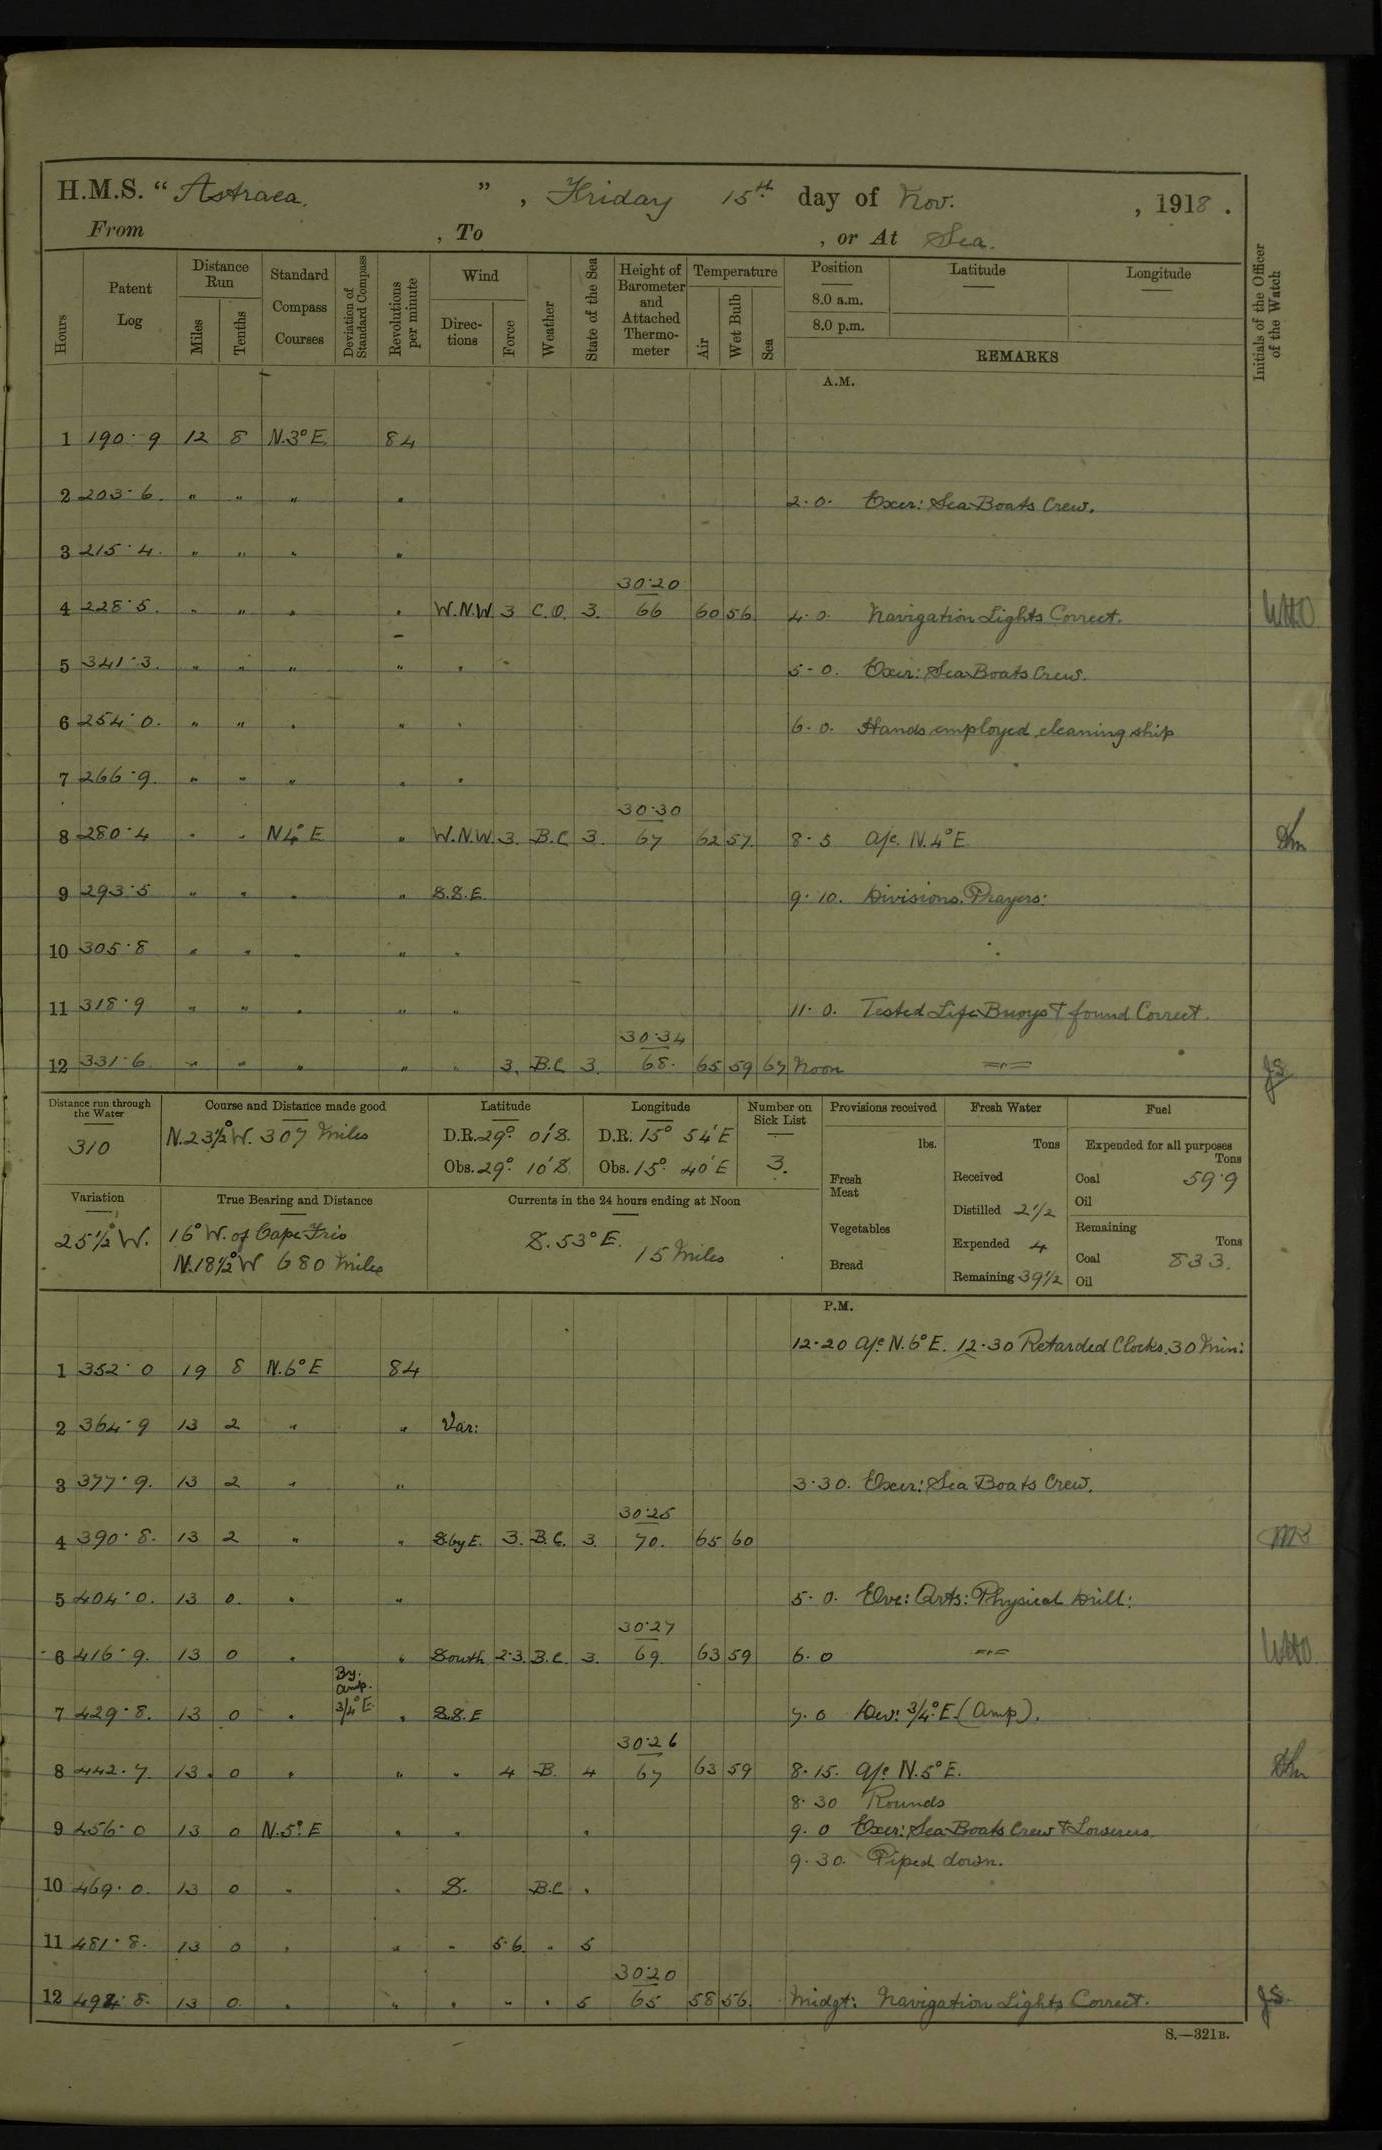 H.M.S. "Astraea.", Friday 15th day of Nov., 1918.
From , To , or At Sea.
Hours
Patent Log
Distance Run
Miles
Tenths
Standard Compass Courses
Deviation of Standard Compass
Revolutions per minute
Wind
Directions
Force
Weather
State of the Sea
Height of Barometer and Attached Thermometer
Temperature
Air
Wet Bulb
Sea
Position
8.0 a.m.
8.0 p.m.
Latitude
Longitude
REMARKS
Initials of the Officer of the Watch
A.M.
1 190.9 12 8 N.3°E. 84
2 203.6. " " " " 2.0. Exer: Sea Boats Crew.
3 215.4. " " " "
30.20
4 228.5. " " " " W.N.W 3 C.O. 3. 66 60 56 4.0. Navigation Lights Correct.
5 341.3. " " " " " 5-0. Exer: Sea Boats Crew.
6 254.0. " " " " " 6.0. Hands employed cleaning ship
7 266.9. " " " " "
30.30
8 280.4 " " N4°E " W.N.W. 3. B.C. 3. 67 62 57. 8.5 A/c. N.4°E
9 293.5 " " " " S.S.E. 9.10. Divisions. Prayers:
10 305.8 " " " " "
11 318.9 " " " " " 11.0. Tested Life Buoys & found Correct.
30.34
12 331.6 " " " " " 3. B.C. 3. 68. 65 59 67 Noon JS
Distance run through the Water
310
Course and Distance made good
N.23½°W. 307 Miles
Latitude
D.R. 29° 01'S.
Obs. 29° 10'S
Longitude
D.R. 15° 54'E
Obs. 15° 40'E
Number on Sick List
3.
Provisions received
lbs.
Fresh Meat
Vegetables
Bread
Fresh Water
Tons
Received
Distilled 2½
Expended 4
Remaining 39½
Fuel
Expended for all purposes
Tons
Coal 59.9
Oil
Remaining
Tons
Coal 833.
Oil
Variation
25½°W.
True Bearing and Distance
16°W. of Cape Frio
N.18½°W 680 Miles
Currents in the 24 hours ending at Noon
S.53°E. 15 Miles
P.M.
12.20 A/c N.6°E. 12.30 Retarded Clocks. 30 Min:
1 352.0 19 8 N.6°E 84
2 364.9 13 2 " " Var:
3 377.9. 13 2 " " 3.30. Exer: Sea Boats Crew.
30.25
4 390.8. 13 2 " " SbyE. 3. B.C. 3. 70. 65 60
5 404.0. 13 0. " " 5.0. Eve: Qrts: Physical Drill:
30.27
6 416.9. 13 0 " " South 2.3. B.C. 3. 69. 63 59 6.0
By. Amp.
7 429.8. 13 0 " ¾°E. " S.S.E 7.0 Dev: ¾°E (Amp).
30.26
8 442.7. 13. 0 " " " 4 B. 4 67 63 59 8.15. A/c N.5°E.
8.30 Rounds
9 456.0 13 0 N.5°E " " " 9.0 Exer: Sea Boats Crew & Lowerers.
9.30. Piped down.
10 469.0. 13 0 " " S. B.C. "
11 481.8. 13 0 " " " 5.6. " 5
30.20
12 494.8. 13 0. " " " " " 5 65 58 56. Midgt: Navigation Lights Correct. JS.
S.—321B.